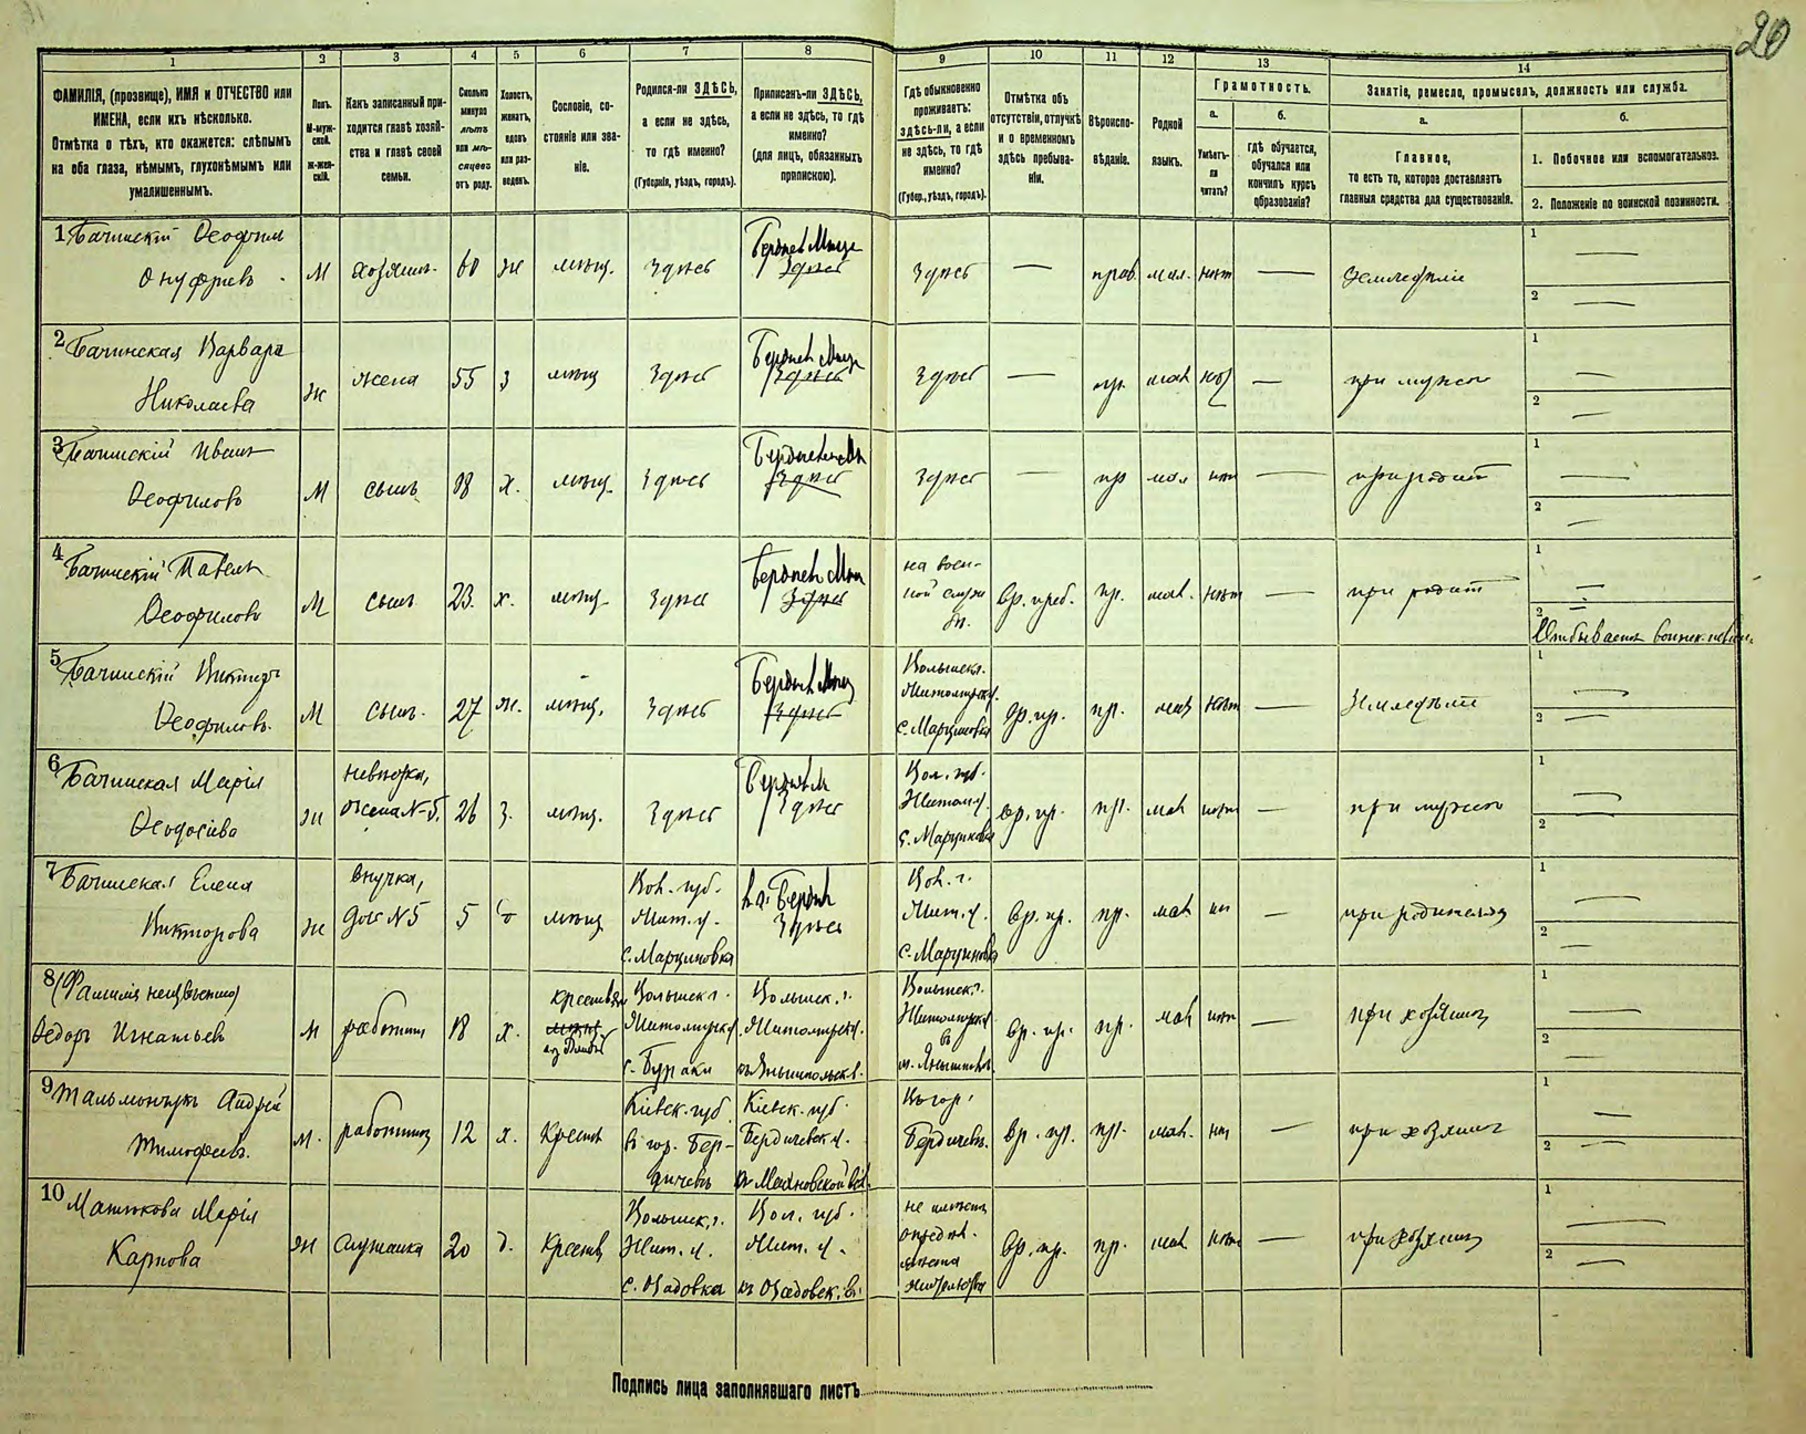 20
1 2 3 4 5 6 7 8 9 10 11 12 13 14
ФАМИЛІЯ, (прозвище), ИМЯ и ОТЧЕСТВО или ИМЕНА, если ихъ нѣсколько.
Отмѣтка о тѣхъ, кто окажется: слѣпымъ на оба глаза, нѣмымъ, глухонѣмымъ или умалишеннымъ.
Полъ.
М-мужской.
Ж-женскій.
Какъ записанный приходится главѣ хозяйства и главѣ своей семьи.
Сколько минуло лѣтъ или мѣсяцевъ отъ роду.
Холостъ, женатъ, вдовъ или разведенъ.
Сословіе, состояніе или званіе.
Родился-ли ЗДѢСЬ, а если не здѣсь, то гдѣ именно?
(Губернія, уѣздъ, городъ).
Приписанъ-ли ЗДѢСЬ, а если не здѣсь, то гдѣ именно?
(для лицъ, обязанныхъ припискою).
Гдѣ обыкновенно проживаетъ: здѣсь-ли, а если не здѣсь, то гдѣ именно?
(Губер., уѣздъ, городъ).
Отмѣтка объ отсутствіи, отлучкѣ и о временномъ здѣсь пребываніи.
Вѣроисповѣданіе.
Родной языкъ.
Грамотность.
а.
Умѣетъ-ли читать?
б.
гдѣ обучается, обучался или кончилъ курсъ образованія?
Занятіе, ремесло, промыселъ, должность или служба.
а.
Главное,
то есть то, которое доставляетъ главныя средства для существованія.
б.
1. Побочное или вспомогательное.
2. Положеніе по воинской повинности.
1 Бачинскій Ѳеофил
Онуфріевъ М хозяинъ 60 ж мѣщ. Здѣсь Здѣсь Здѣсь — прав. мал. нѣт — Земледѣліе 1 — 2 —
2 Бачинская Варвара
Николаева ж жена 55 з мѣщ Здѣсь Здѣсь Здѣсь — пр. мал — при мужѣ 1 — 2 —
3 Бачинскій Иванъ
Ѳеофиловъ М сынъ 18 х. мѣщ. Здѣсь Здѣсь Здѣсь — пр мал нѣт — при родит 1 — 2 —
4 Бачинскій Павелъ
Ѳеофиловъ М сынъ 23. х. мѣщ Здѣсь Здѣсь на воен-
ной служ
бѣ. Вр. преб. пр. мал. нѣт — при родит 1 — 2 Отбываетъ воинск.
5 Бачинскій Викторъ
Ѳеофиловъ. М сынъ. 27 ж. мѣщ. Здѣсь Здѣсь Волынск.
Житомирск у.
с. Марциновка Вр. пр. пр. мал нѣт — Земледѣліе 1 — 2 —
6 Бачинская Марія
Ѳеодосіева ж невѣстка,
жена №5. 26 з. мѣщ. Здѣсь Здѣсь Вол. губ.
Житом. у.
с. Марциновка Вр. пр. пр. мал нѣт — при мужѣ 1 — 2 —
7 Бачинская Елена
Викторова ж внучка,
доч №5 5 мѣщ Вол. губ.
Жит. у.
с. Марциновка Здѣсь Вол. г.
Жит. у.
с. Марциновка Вр. пр. пр. мал — при родителях 1 — 2 —
8 (Фамилія неизвѣстна)
Ѳедоръ Игнатьев М работник 18 х. Волынск г.
Житомирск у.
с. Бураки Волынск. г.
Житомирск у. Волынск. г.
Житомирск у. Вр. пр. пр. мал нѣт — при хозяинѣ 1 — 2 —
9 Андрей
Тимофеевъ. М. работник 12 х. Крест Кіевск. губ
въ гор. Бер-
дичевѣ Кіевск. губ.
Бердичевск у.
Махновской вол. Въ гор.
Бердичевѣ. Вр. пр. пр. мал. — при хозяинѣ 1 — 2 —
10 Марія
Карпова ж служанка 20 д. Волынск. г.
Жит. у. Вол. губ.
Жит. у. не имѣетъ
опредѣл.
мѣста
жительства Вр. пр. пр. мал нѣт — при хозяинѣ 1 — 2 —
Подпись лица заполнявшаго листъ